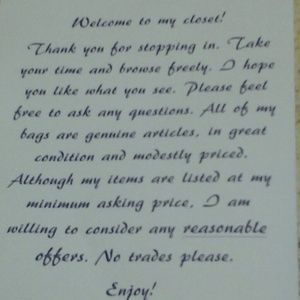 Welcome to my closet!
Thank you for stopping in. Take
your time and browse freely. I hope
you like what you see. Please feel
free to ask any questions. All of my
bags are genuine articles, in great
condition and modestly priced.
Although my items are listed at my
minimum asking price, I am
willing to consider any reasonable
offers. No trades please.
Enjoy!